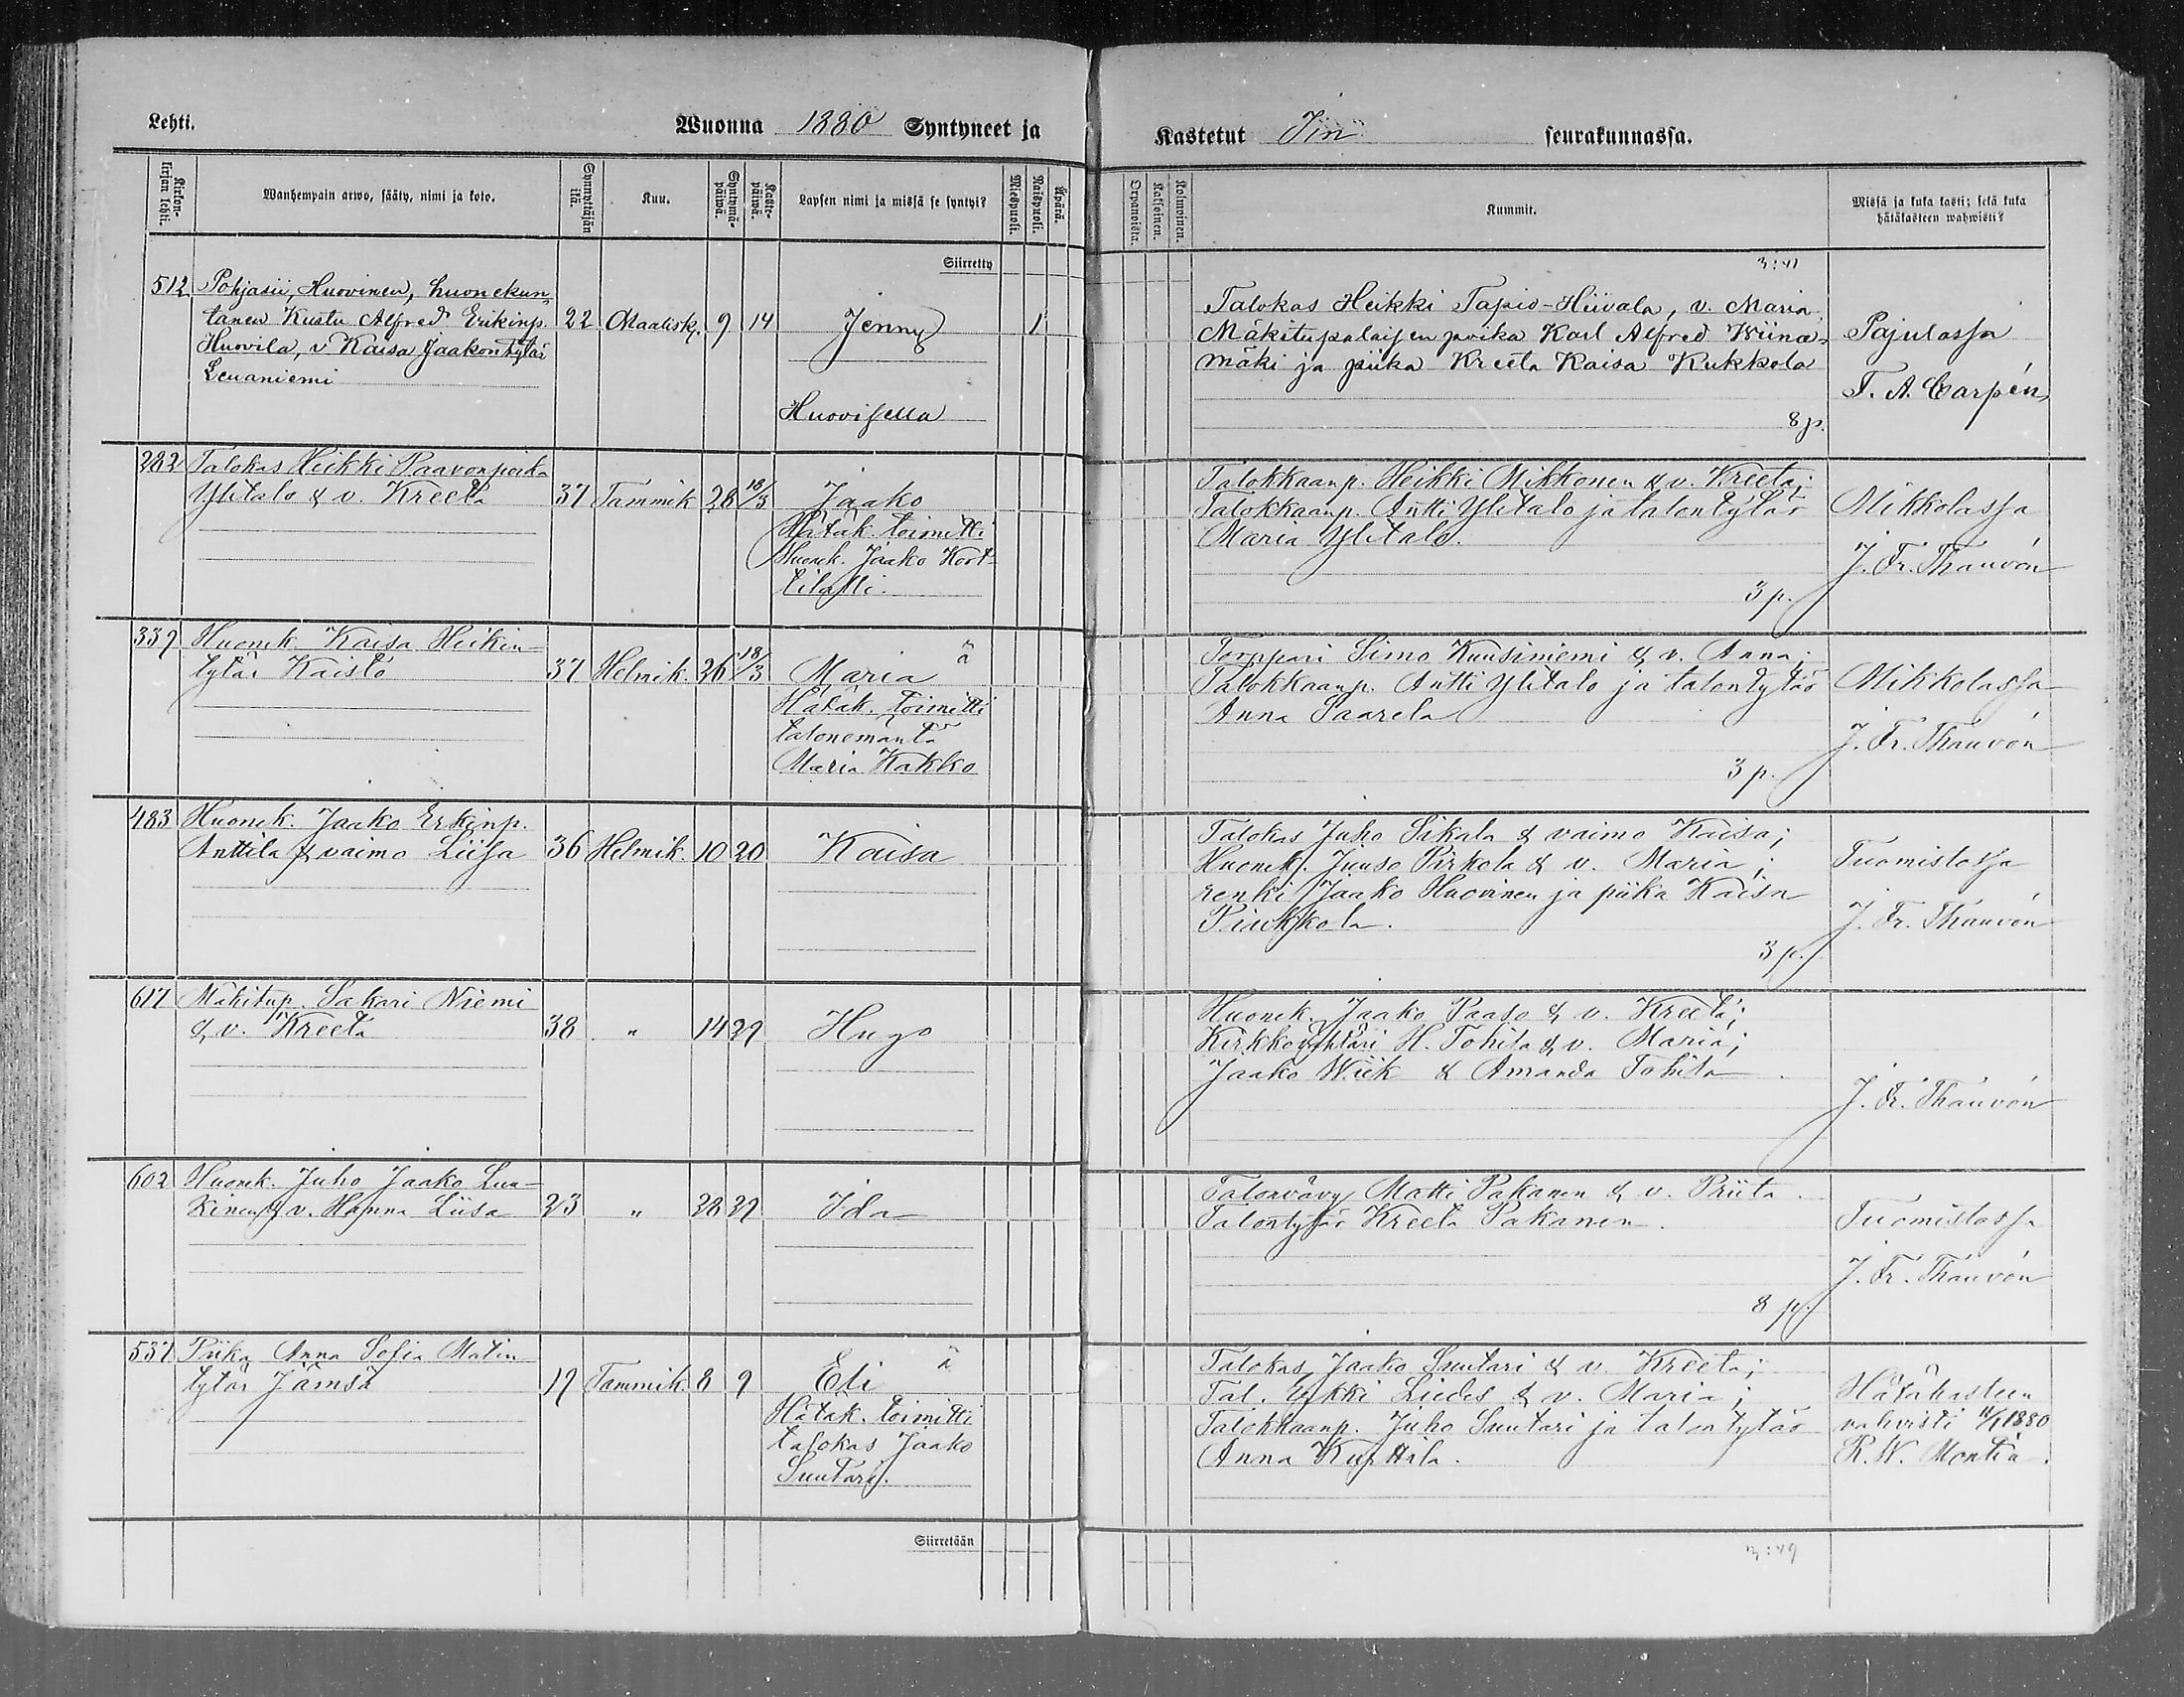 Lehti.
Wuonna 1880 Syntyneet ja
Kastetut Iin seurakunnassa.
Kirkon-kirjan lehti.
Wanhempain arwo, sääty, nimi ja koto.
Synnyttäjän ikä.
Kuu.
Syntymä-päiwä.
Kaste-päiwä.
Lapsen nimi ja missä se syntyi?
Miespuoli.
Waispuoli.
Äpärä.
Orpanoista.
Kaksoinen.
Kolmoinen.
Kummit.
Missä ja kuka kasti; sekä kuka
hätäkasteen wahwisti?
Siirretty
3:41
512 Pohjasii, Huovinen, huonekun-
tanen Kustu Alfred Erikinp. 22 Maalisk. 9 14 Jenny 1
Huovila, v Kaisa Jaakontytär
Leuaniemi
Huovisella
Talokas Heikki Tapio-Hiivala, v. Maria,
Mäkitupalaisen poika Karl Alfred Wiina-
mäki ja piika Kreeta Kaisa Kukkola
8 p.
Pajulassa
T. A. Carpén
282 Talokas Heikki Paavonpoika
Ylitalo & v. Kreeta 37 Tammik 28 18/3 Jaako
Hätäk. toimitti
Huonek. Jaako Kort-
tilalli.
Talokkaanp. Heikki Mikkonen & v. Kreeta;
Talokkaanp. Antti Ylitalo ja talontytär
Maria Ylitalo.
3 p.
Mikkolassa
J. Fr. Thauvón
339 Huonek. Kaisa Heikin-
tytär Kaisto 37 Helmik. 26 18/3 Maria ä
Hätäk. toimitti
talonemäntä
Maria Kakko
Torppari Simo Kuusiniemi & v. Anna;
Talokkaanp. Antti Ylitalo ja talontytär
Anna Saarela
3 p.
Mikkolassa
J. Fr. Thauvón
483 Huonek. Jaako Erkinp.
Anttila & vaimo Liisa 36 Helmik. 10 20 Kaisa
Talokas Juho Sikala & vaimo Kaisa;
Huonek. Juuso Pirkola & v. Maria;
renki Jaako Huovinen ja piika Kaisa
3 p.
Tuomistossa
J. Fr. Thauvón
617 Mäkitup. Sakari Niemi
& v. Kreeta 38 " 14 29 Hugo
Huonek. Jaako Paaso & v. Kreeta;
H. Tohila & v. Maria;
Jaako Wiik & Amanda Tohila
J. Fr. Thauvón
602 Huonek. Juho Jaako Luu-
kinen & v. Hanna Liisa 23 " 28 29 Ida
Talonvävy Matti Pakanen & v. Priita.
Talontytär Kreeta Pakanen.
8 p.
Tuomistossa
J. Fr. Thauvón
537 Piika Anna Sofia Matin
tytär Jämsä 19 Tammik. 8 9 Eli ä
Hätäk. toimitti
talokas Jaako
Suutari.
Talokas Jaako Suutari & v. Kreeta;
Tal. Erkki Liedes & v. Maria;
Talokkaanp. Juho Suutari ja talontytär
Anna Kurttila.
Hätäkasteen
vahvisti 11/1 1880
R. W. Montin.
Siirretään
3:49